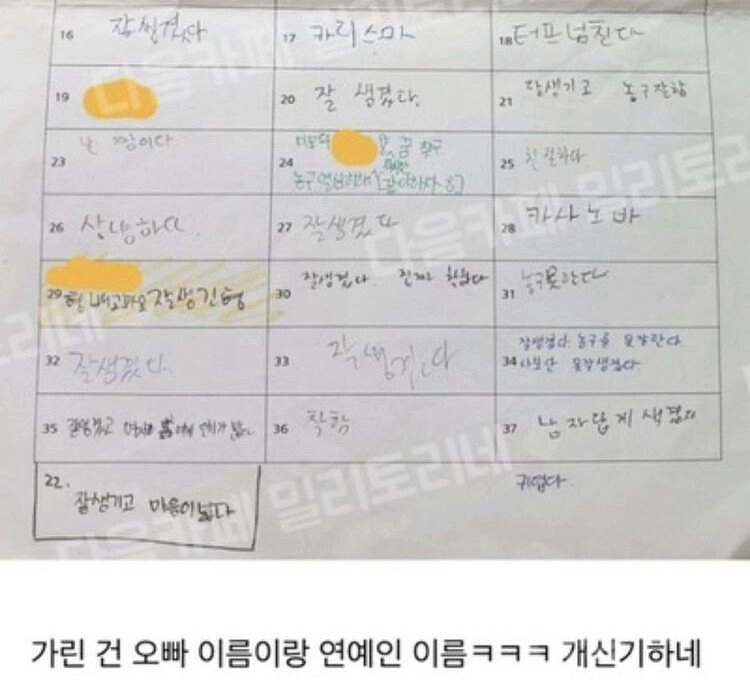 16 잘생겼다
17 카리스마
18 터프넘친다
19
20 잘 생겼다.
21 잘생기고 농구잘함
23 짱이다
24
농구 열심히해
25 친절하다
26 상냥하다.
27 잘생겼다
28 카사노바
29 잘생긴형
30 잘생겼다. 진짜 착하다
31 농구못한다
32 잘생겼다.
33 잘생겼다
34 잘생겼다 농구를 못잘한다.
사보단 못잘생겼다.
35 잘생겼고 인기가 많다.
36 착함
37 남자답게 생겼다
22.
잘생기고 마음이넓다
귀엽다
다음카페 밀리토리네
가린 건 오빠 이름이랑 연예인 이름ㅋㅋㅋ 개신기하네